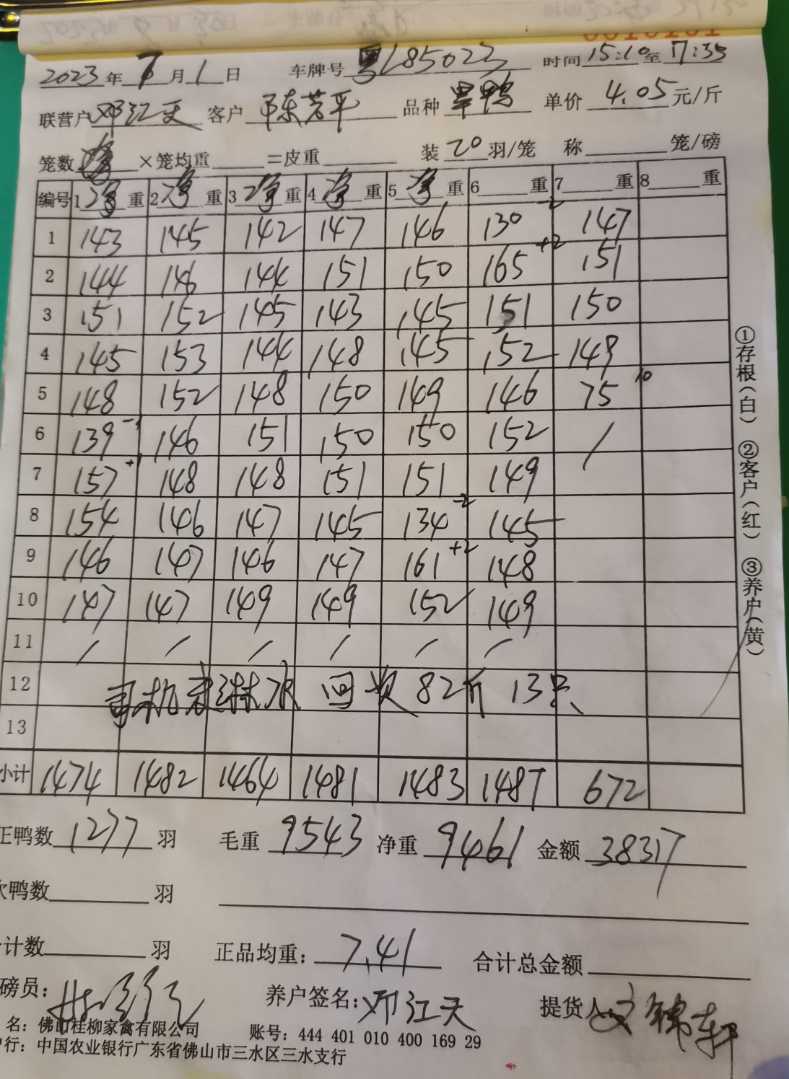 2023年7月1日 车牌号粤L85023 时间15:10至17:35
联营户邓江天 客户陈芳平 品种 单价4.05元/斤
笼数 ×笼均重 =皮重 装20羽/笼 称 笼/磅
编号 1净重 2净重 3净重 4净重 5净重 6 重 7 重 8 重
1 143 145 142 147 146 130-2 147
2 144 146 144 151 150 165+2 151
3 151 152 145 143 145 151 150
4 145 153 144 148 145 152 149
5 148 152 148 150 149 146 75 10
6 139-1 146 151 150 150 152 /
7 157+1 148 148 151 151 149
8 154 146 147 145 134-2 145
9 146 147 146 147 161+2 148
10 147 147 149 149 152 149
11 / / / / / /
12 司机 回 82斤 13只
13
小计 1474 1482 1464 1481 1483 1487 672
正鸭数1277羽 毛重9543 净重9461 金额38317
次鸭数 羽
计数 羽 正品均重:7.41 合计总金额
磅员: 养户签名:邓江天 提货人
名:佛山桂柳家禽有限公司 账号:444 401 010 400 169 29
行:中国农业银行广东省佛山市三水区三水支行
①存根(白) ②客户(红) ③养户(黄)